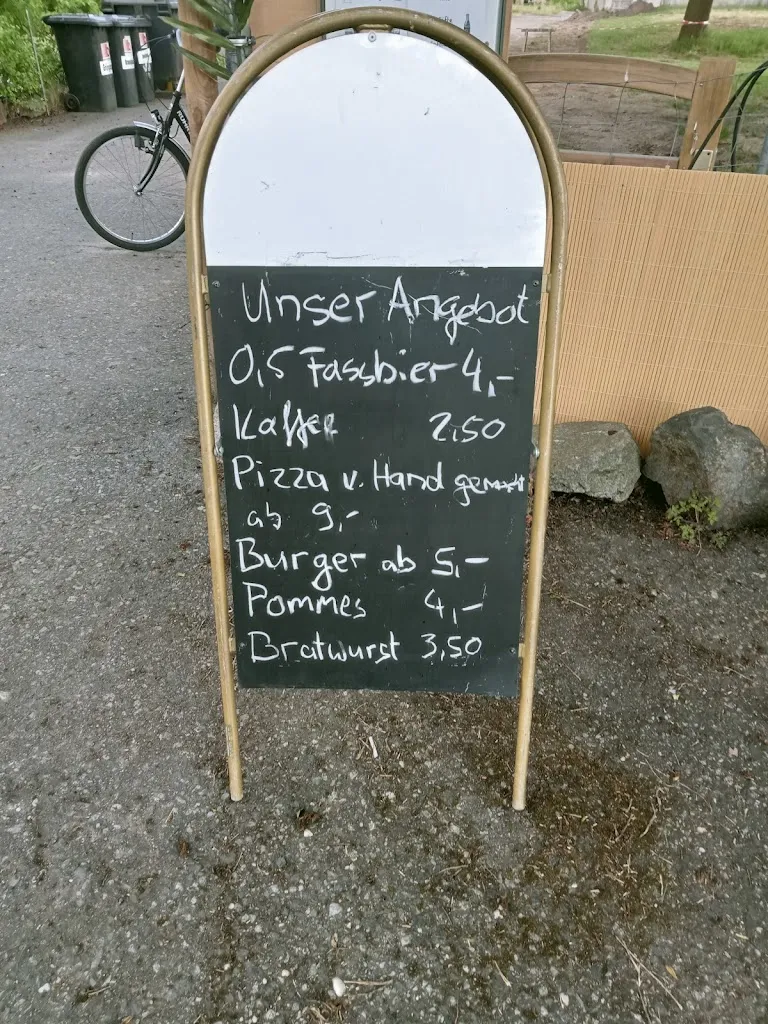 Unser Angebot
0,5 Fassbier 4,-
Kaffee 2,50
Pizza v. Hand gemacht
ab 9,-
Burger ab 5,-
Pommes 4,-
Bratwurst 3,50